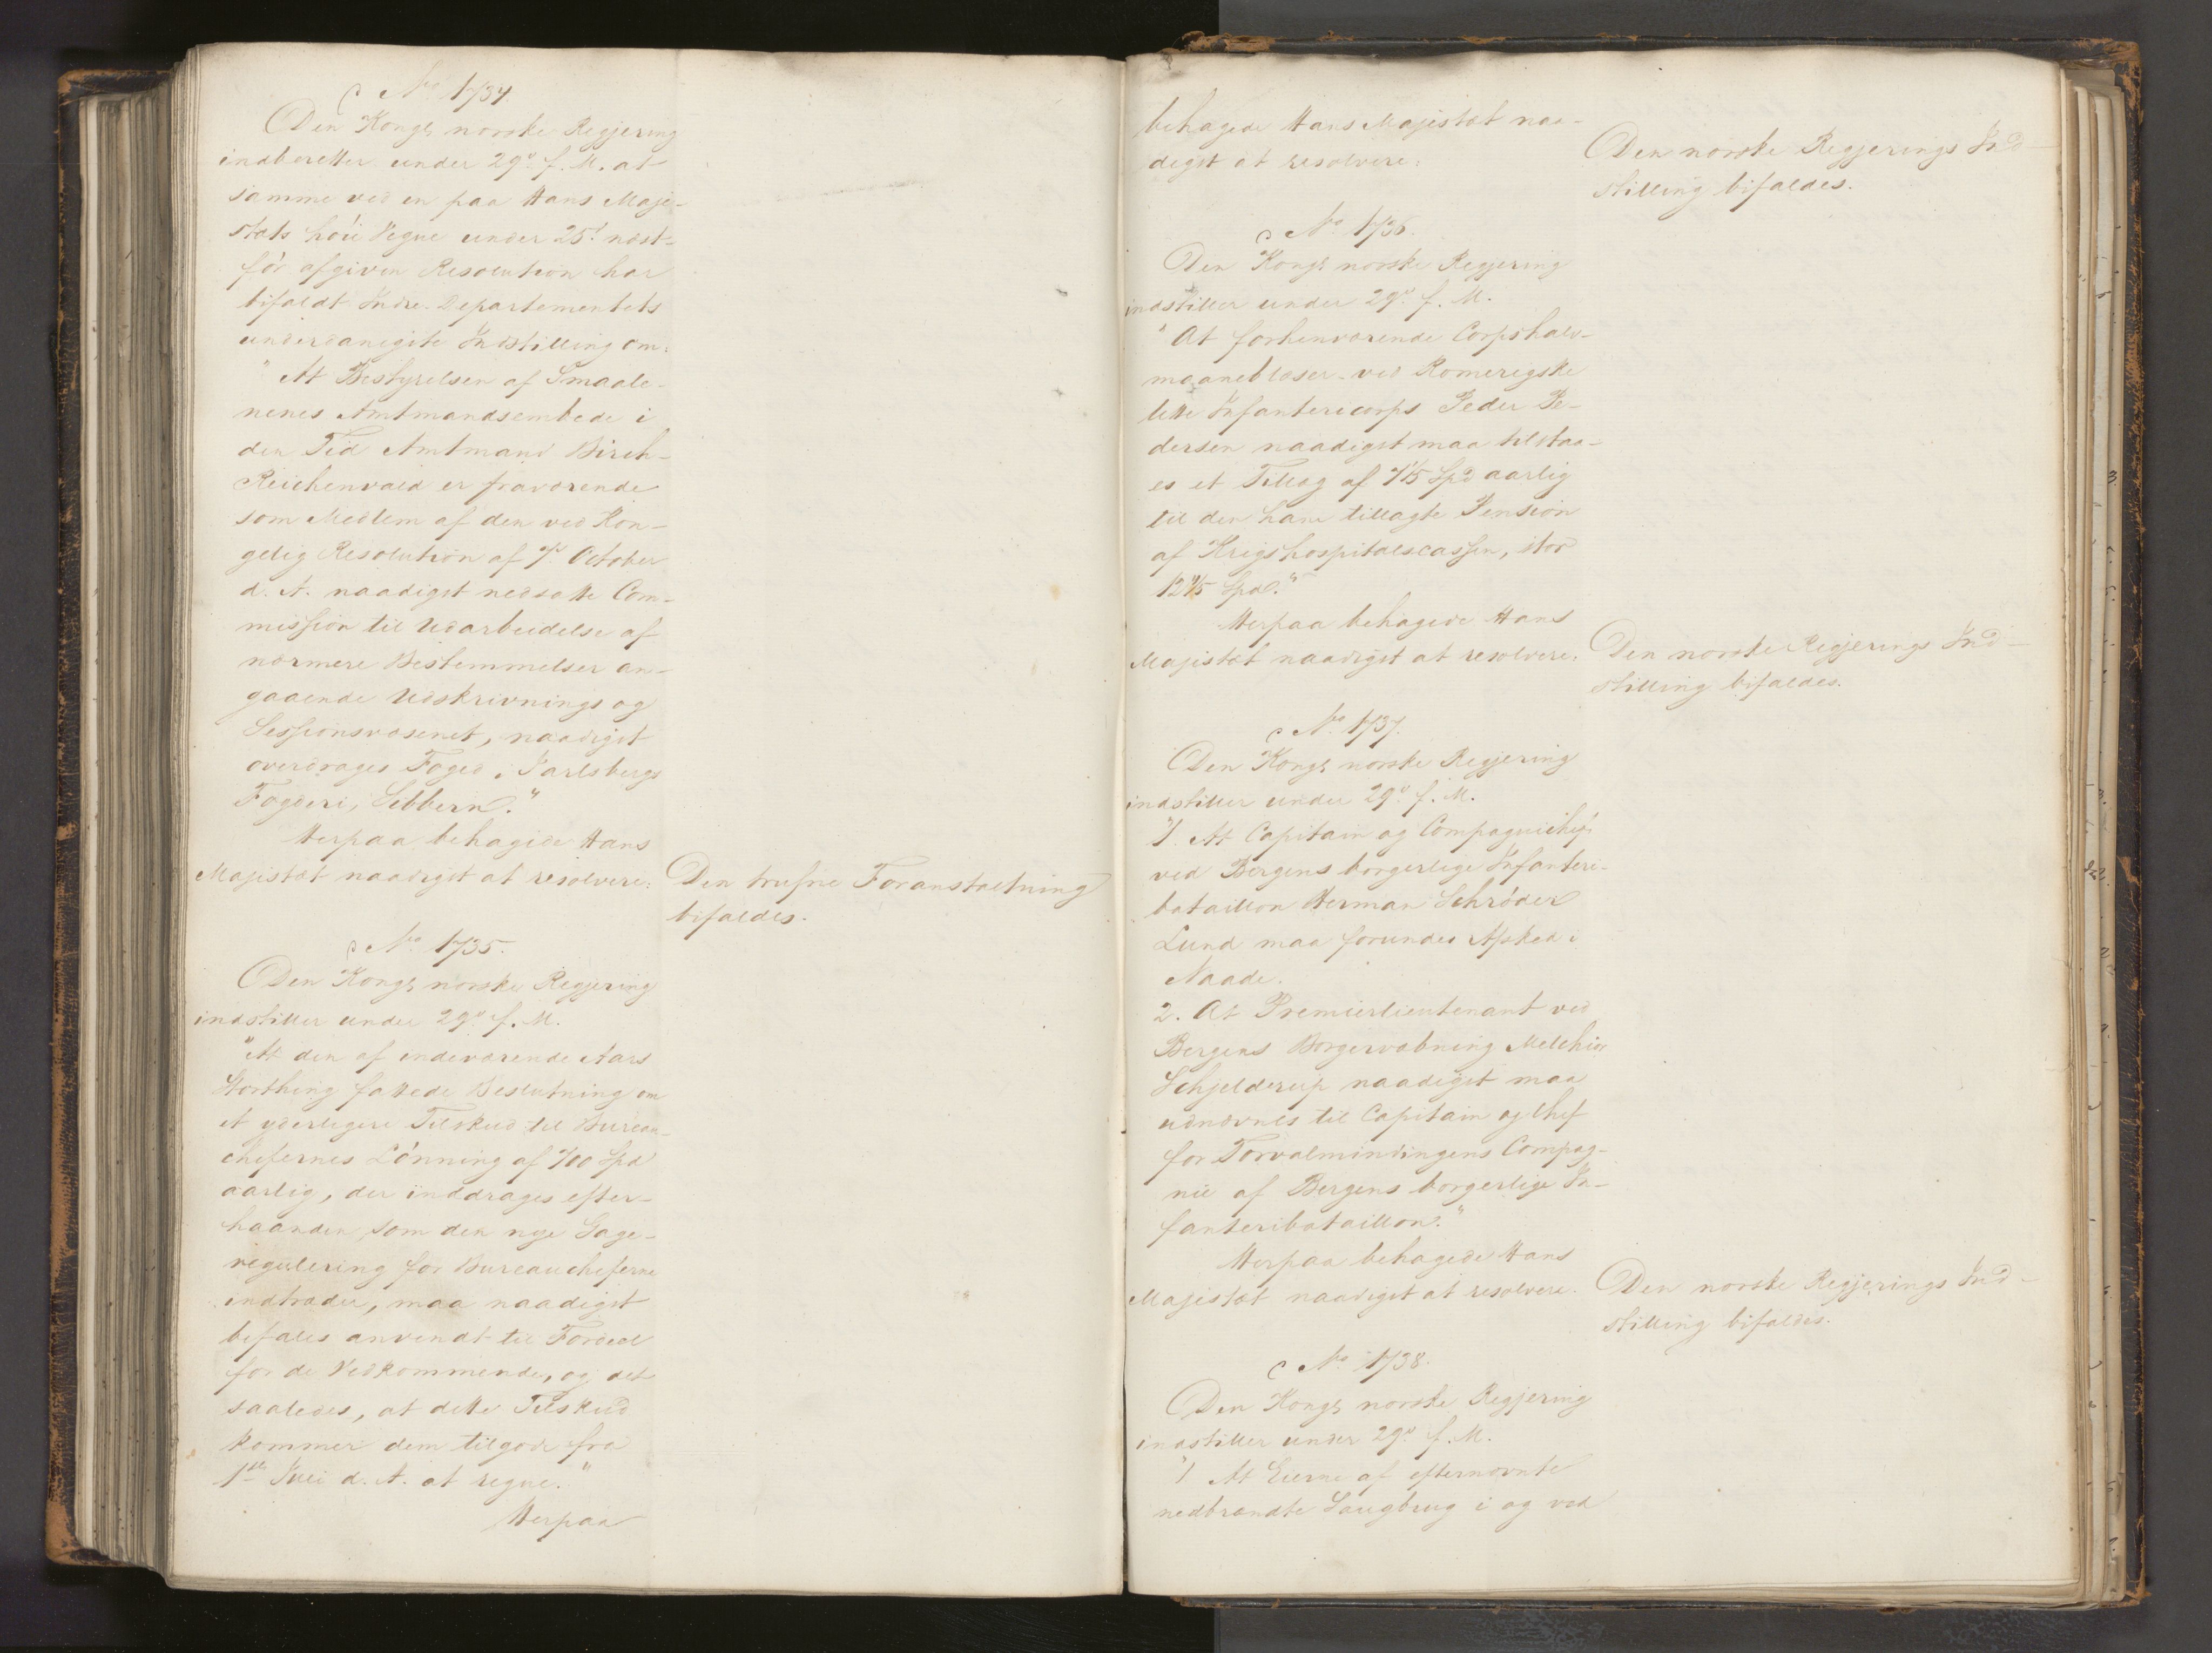 No 1734.
Den Kongl. norske Regjering
indberetter under 29de f. M. at
samme ved en paa Hans Maje-
stæts høie Vegne under 25de næst-
før afgiven Resolution har
bifaldt Indre-Departementets
underdanigste Indstilling om:
"At Bestyrelsen af Smaale-
nenes Amtmandsembede i
den Tid Amtmand Birch-
Reichenvald er fraværende
som Medlem af den ved Kon-
gelig Resolution af 7de October
d. A. naadigst nedsatte Com-
mission til Udarbeidelse af
nærmere Bestemmelser an-
gaaende Udskrivnings og
Sessionsvæsenet, naadigst
overdrages Foged i Jarlsbergs
Fogderi, Sibbern."
Herpaa behagede Hans
Majestæt naadigst at resolvere:
Den trufne Foranstaltning
bifaldes.
No 1735.
Den Kongl. norske Regjering
indstiller under 29de f. M.
"At den af indeværende Aars
Storthing fattede Beslutning om
et yderligere Tilskud til Bureau-
chefernes Lønning af 100 Spd
aarlig, der inddrages efter-
haanden som den nye Gage-
regulering for Bureaucheferne
indtræder, maa naadigst
befales anvendt til Fordeel
for de Vedkommende, og det
saaledes, at dette Tilskud
kommer dem tilgode fra
1ste Juli d. A. at regne."
Herpaa
behagede Hans Majestæt naa-
digst at resolvere:
Den norske Regjerings Ind-
stilling bifaldes.
No 1736.
Den Kongl. norske Regjering
indstiller under 29de f. M.
"At forhenværende Corpshalv-
maaneblæser ved Romerigske
lette Infantericorps Peder Pe-
dersen naadigst maa tilstaa-
es et Tillæg af Spd aarlig
til den ham tillagte Pension
af Krigshospitalscassen, stor
Spd."
Herpaa behagede Hans
Majestæt naadigst at resolvere:
Den norske Regjerings Ind-
stilling bifaldes.
No 1737.
Den Kongl. norske Regjering
indstiller under 29de f. M.
"1. At Capitain og Compagniechef
ved Bergens borgerlige Infanteri-
bataillon Herman Schrøder
Lund maa forundes Afsked i
Naade.
2. At Premierlieutenant ved
Bergens Borgervæbning Melchior
Schjelderup naadigst maa
udnævnes til Capitain og Chef
for Torvalmindingens Compag-
nie af Bergens borgerlige In-
fanteribataillon."
Herpaa behagede Hans
Majestæt naadigst at resolvere:
Den norske Regjerings Ind-
stilling bifaldes.
No 1738.
Den Kongl. norske Regjering
indstiller under 29de f. M.
"1 At Eierne af efternævnte
nedbrændte Saugbrug i og ved